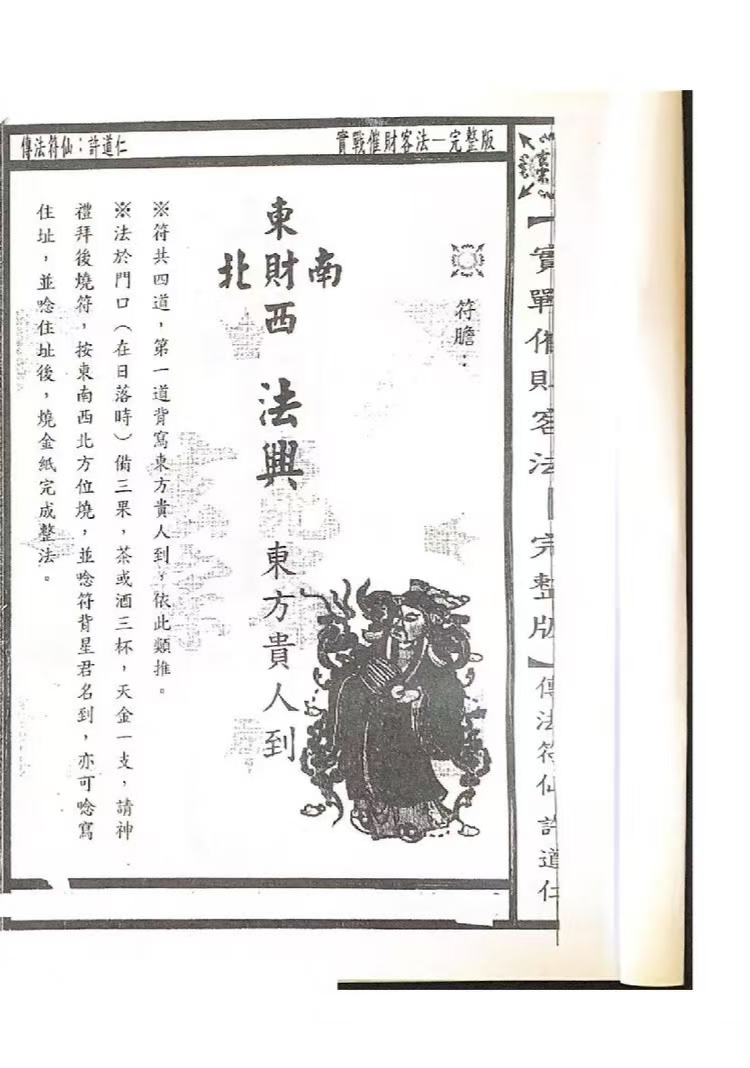 實戰催財客法—完整版
傳法符仙：許道仁
【實戰催財客法—完整版】傳法符仙 許道仁
符膽：
東
北財南
西
法興
東方貴人到
※符共四道，第一道背寫東方貴人到，依此類推。
※法於門口（在日落時）備三果，茶或酒三杯，天金一支，請神
禮拜後燒符，按東南西北方位燒，並唸符背星君名到，亦可唸寫
住址，並唸住址後，燒金紙完成整法。